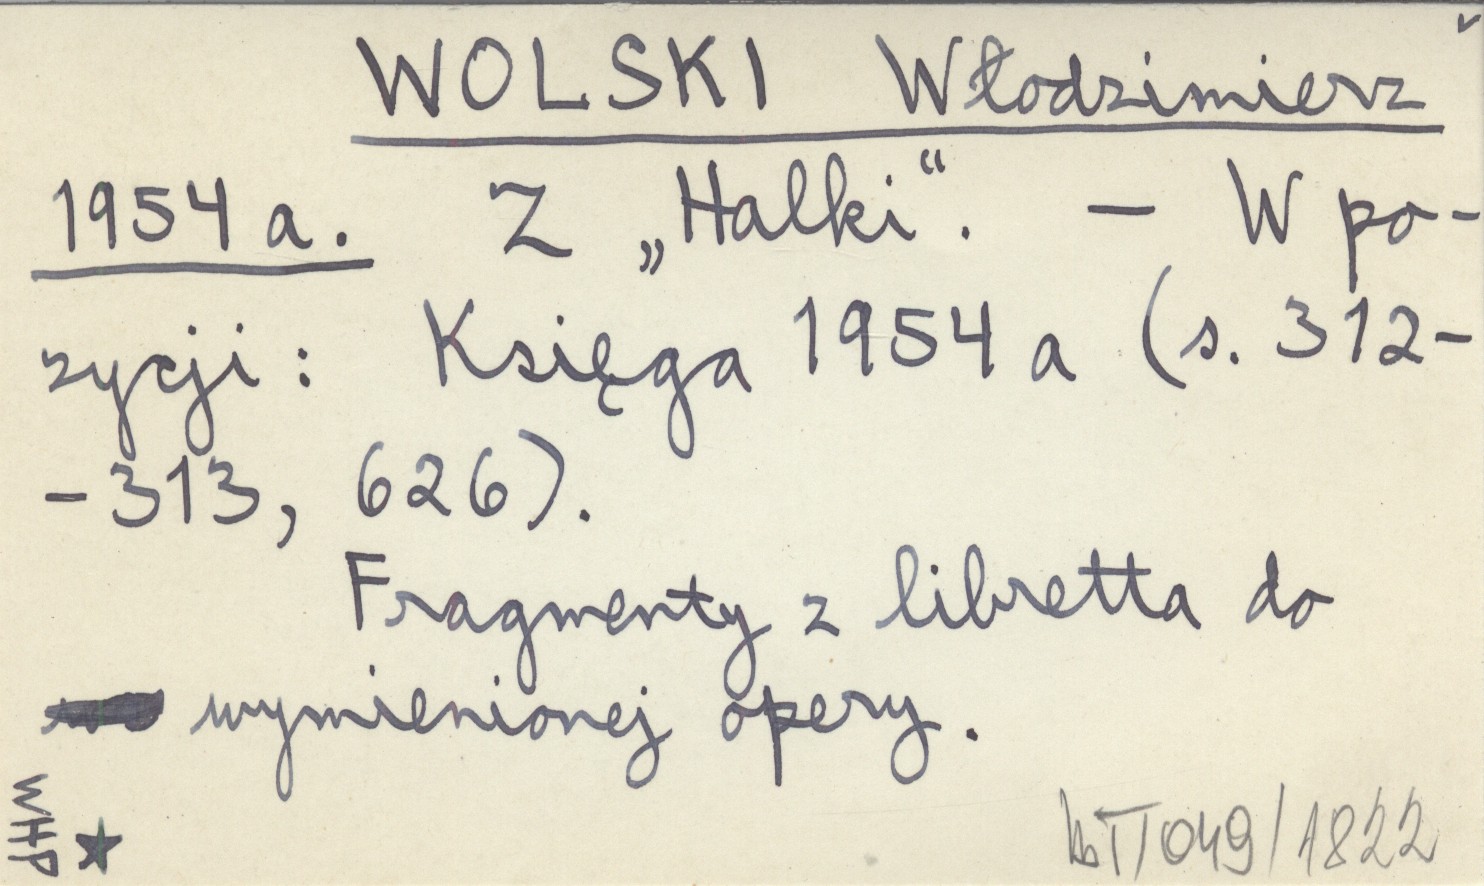 WOLSKI Włodzimierz
1954 a. Z „Halki“. — W po-
zycji: Księga 1954 a (s. 312-
-313, 626).
Fragmenty z libretta do
wymienionej opery.
WHP
049/1822